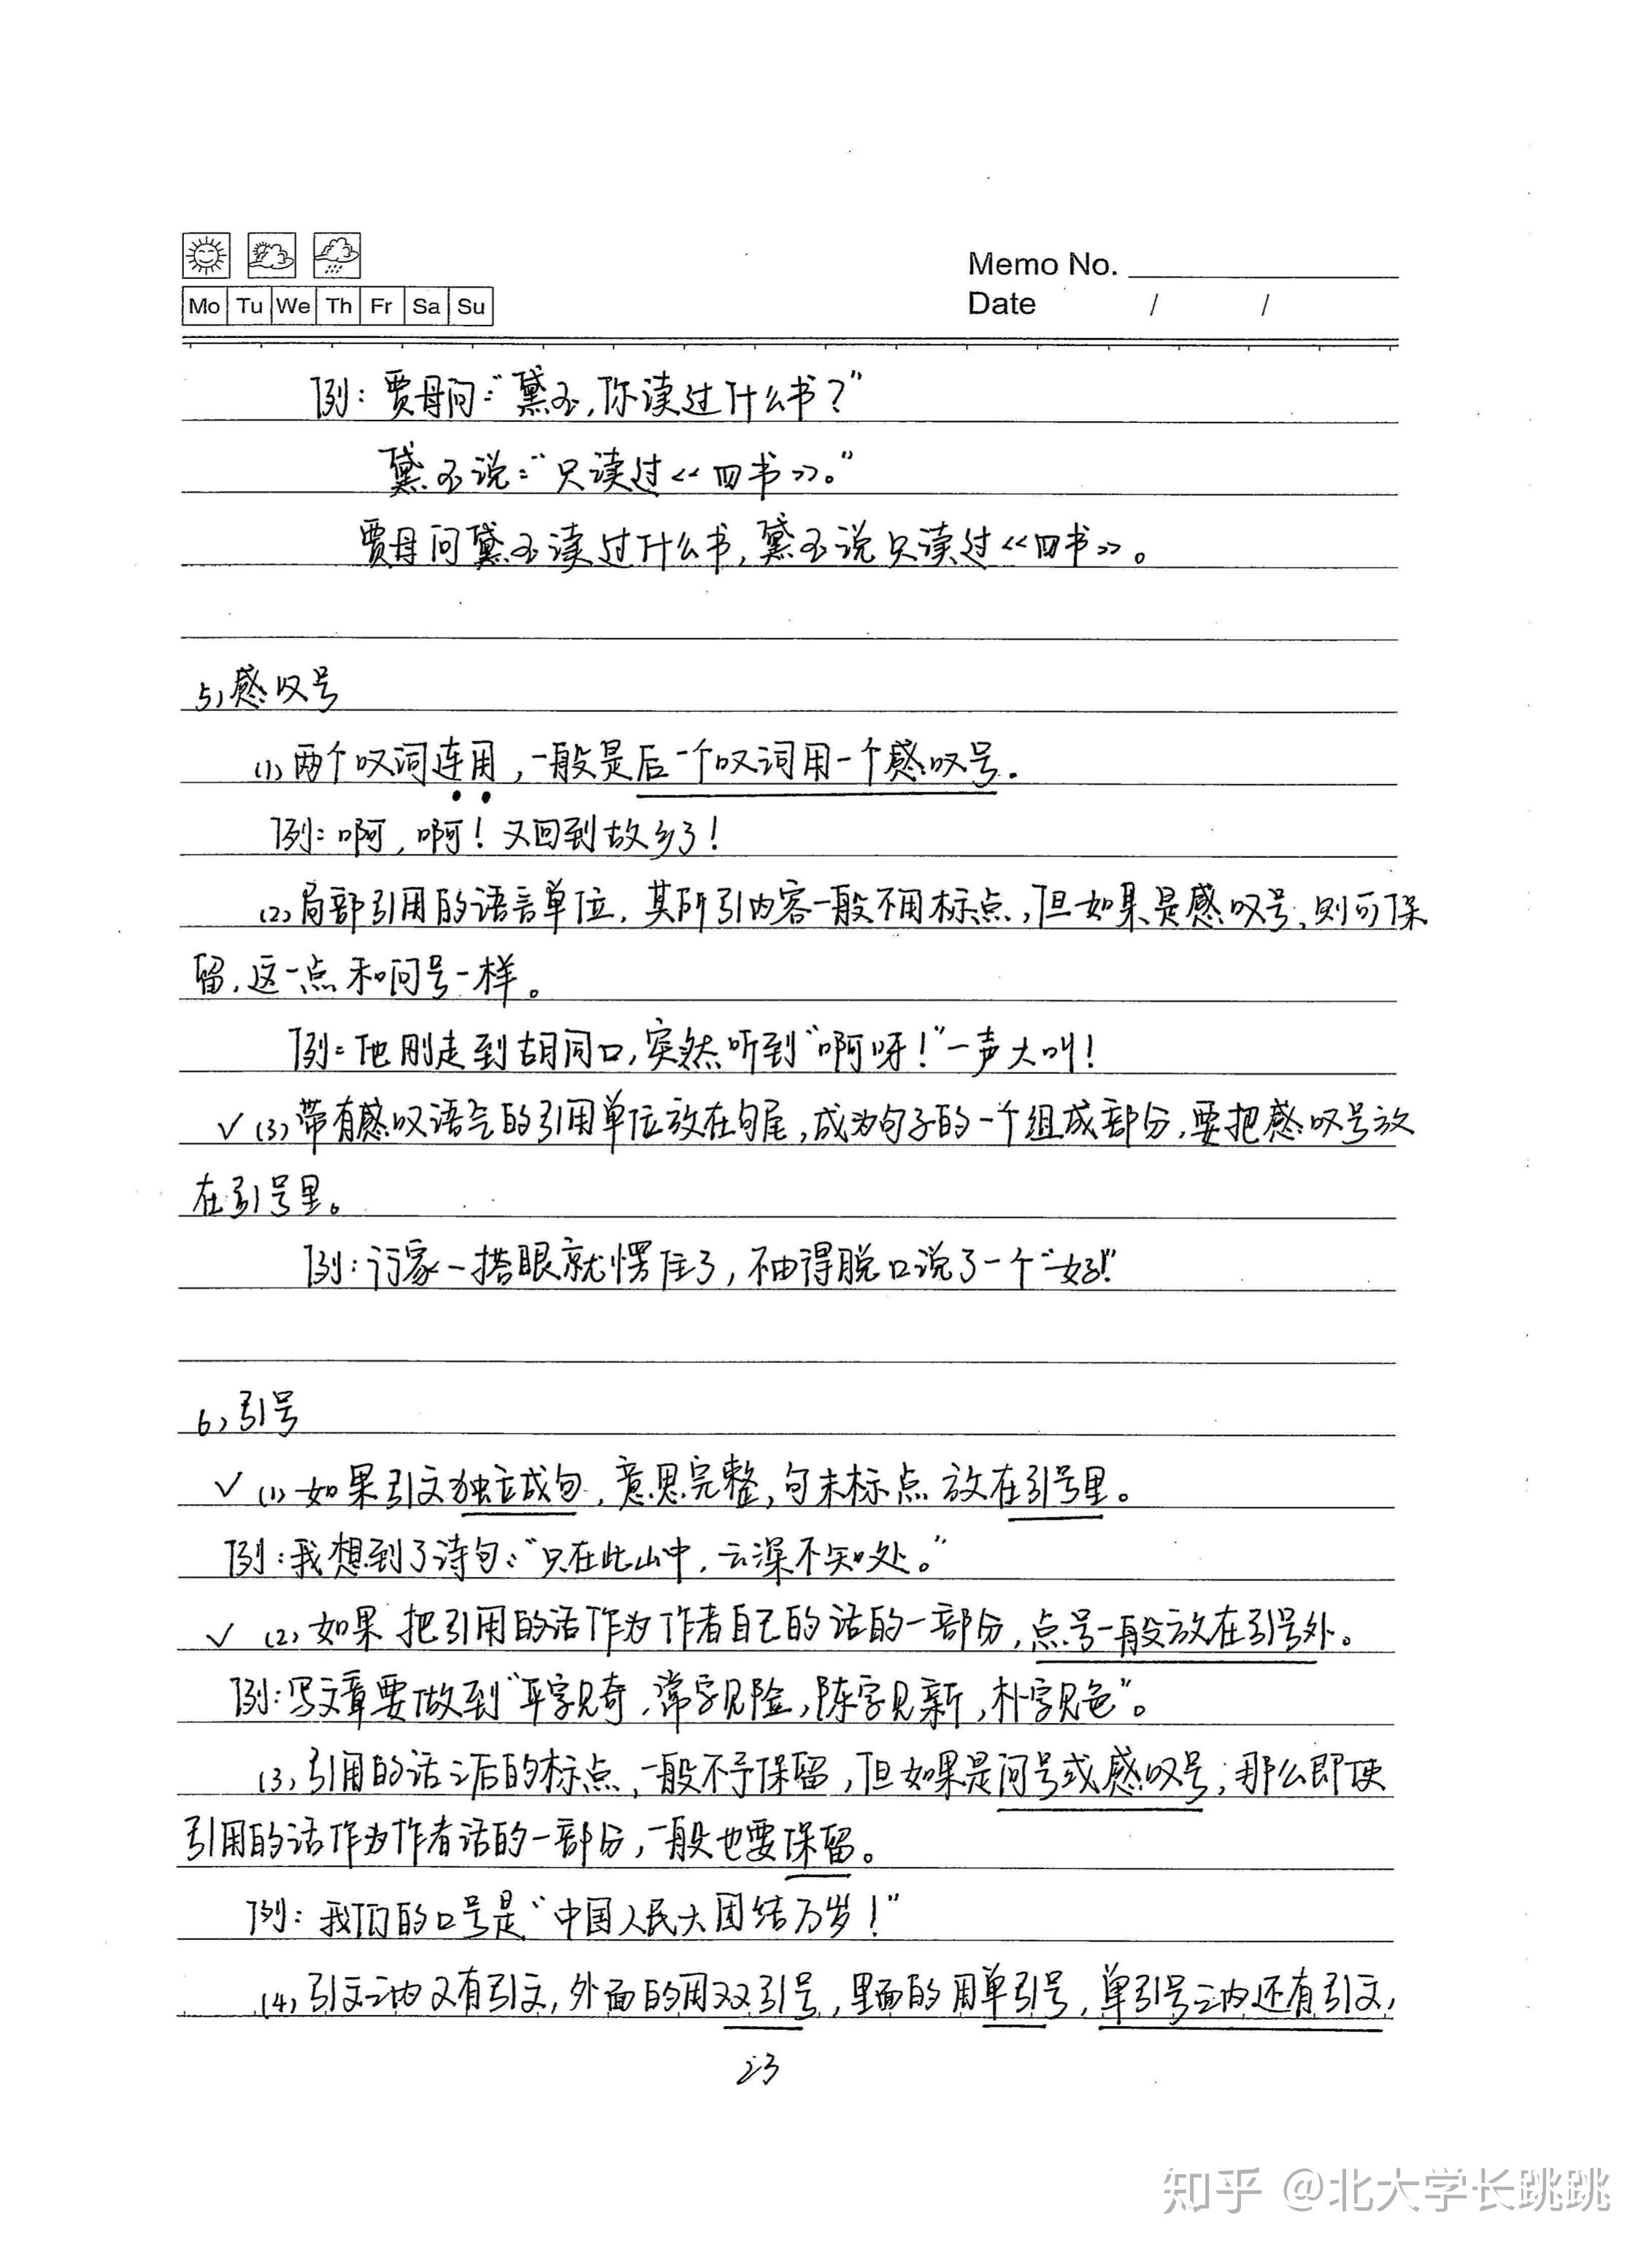 Memo No.
Mo Tu We Th Fr Sa Su
Date / /
例：贾母问：“黛玉，你读过什么书？”
黛玉说：“只读过《四书》。”
贾母问黛玉读过什么书，黛玉说只读过《四书》。
5，感叹号
(1)，两个叹词连用，一般是后一个叹词用一个感叹号.
例：啊，啊！又回到故乡了！
(2)，局部引用的语言单位，其所引内容一般不用标点，但如果是感叹号，则可保
留，这一点和问号一样。
例：他刚走到胡同口，突然听到“啊呀！”一声大叫！
✓ (3)，带有感叹语气的引用单位放在句尾，成为句子的一个组成部分，要把感叹号放
在引号里。
例：行家一搭眼就愣住了，不由得脱口说了一个“好！”
6，引号
✓ (1)，如果引文独立成句，意思完整，句末标点放在引号里。
例：我想到了诗句：“只在此山中，云深不知处。”
✓ (2)，如果把引用的话作为作者自己的话的一部分，点号一般放在引号外。
例：写文章要做到“平字见奇，常字见险，陈字见新，朴字见色”。
(3)，引用的话之后的标点，一般不予保留，但如果是问号或感叹号，那么即使
引用的话作为作者话的一部分，一般也要保留。
例：我们的口号是“中国人民大团结万岁！”
(4)，引文之内又有引文，外面的用双引号，里面的用单引号，单引号之内还有引文，
23
知乎 @北大学长跳跳